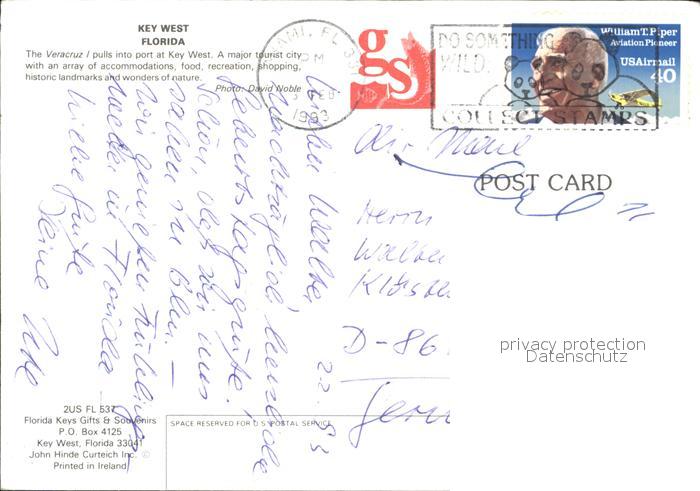 KEY WEST
FLORIDA
The Veracruz I pulls into port at Key West. A major tourist city
with an array of accommodations, food, recreation, shopping,
historic landmarks and wonders of nature.
Photo: David Noble
MIAMI, FL
PM
1993
gs
DO SOMETHING
WILD.
COLLECT STAMPS
William T. Piper
Aviation Pioneer
USAirmail
40
POST CARD
Air
Herrn
D-86
privacy protection
Datenschutz
22.
Lieber
nachträglich herzliche
Geburtstagsgrüße!
Schön, daß wir uns
sahen
Wir genießen Frühlings-
wetter in Florida
Liebe Grüße
Deine
2US FL 537
Florida Keys Gifts & Souvenirs
P.O. Box 4125
Key West, Florida 33041
John Hinde Curteich Inc. ©
Printed in Ireland
SPACE RESERVED FOR U.S. POSTAL SERVICE